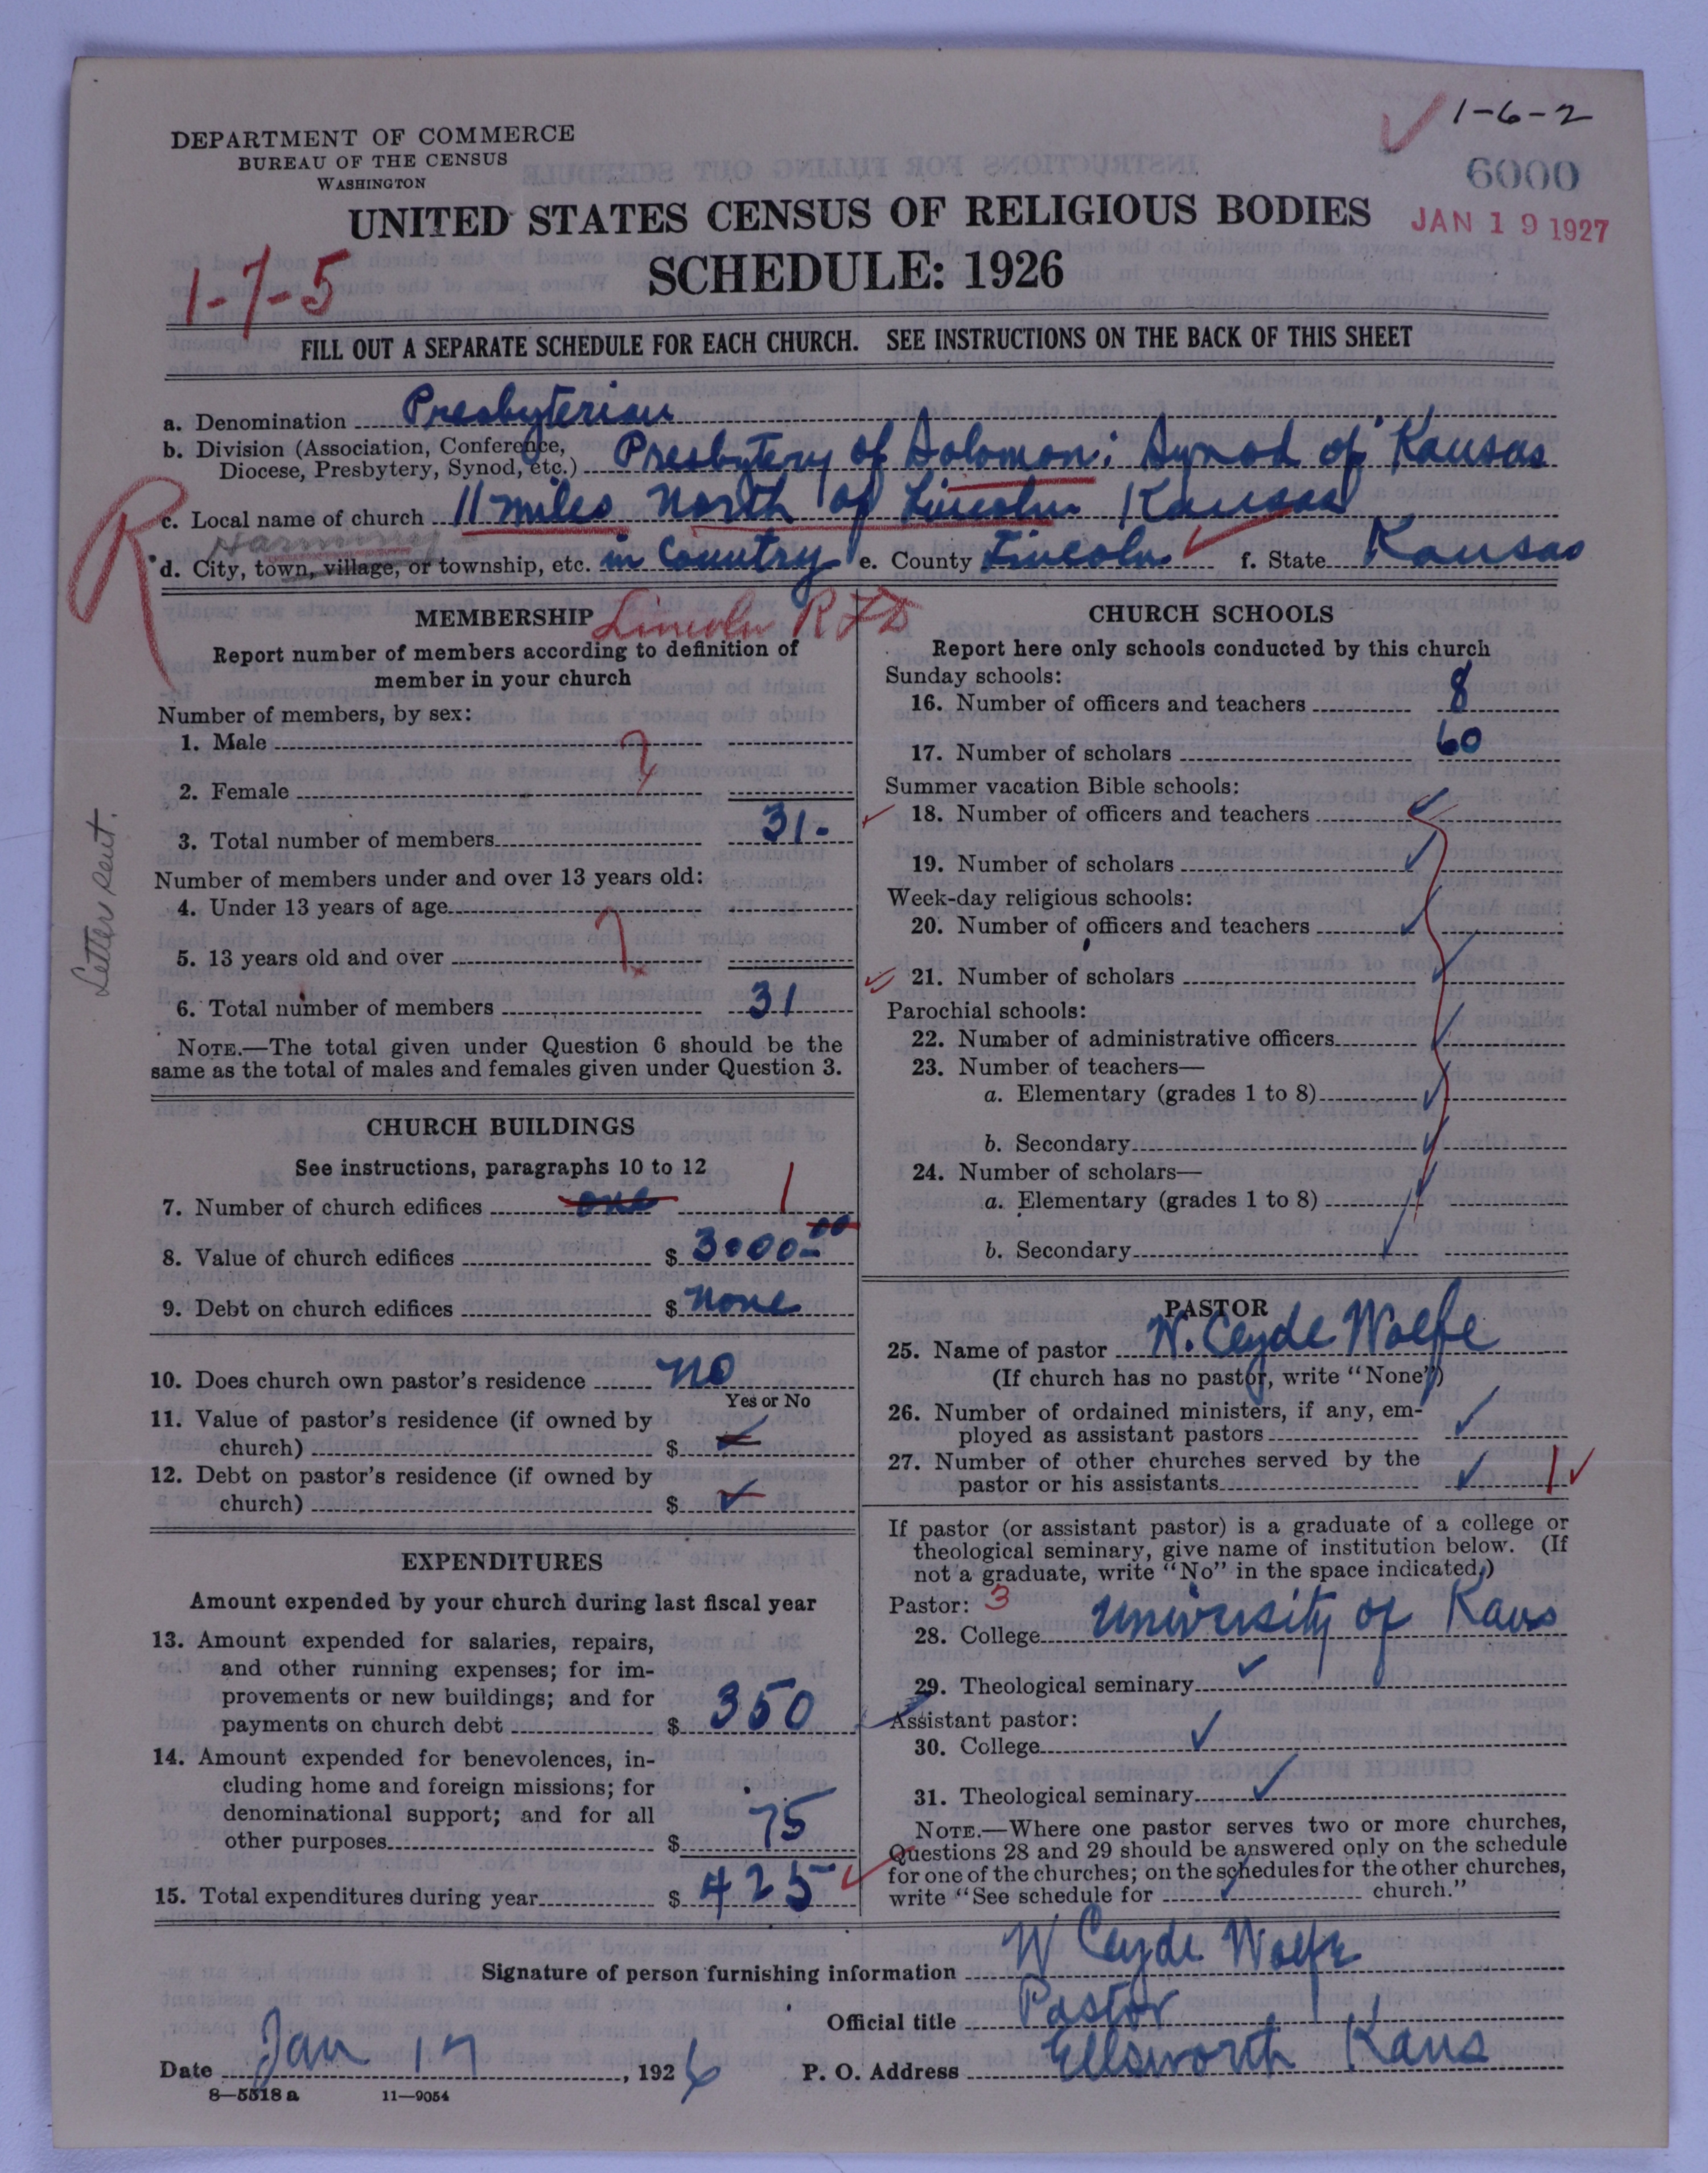 1-6-2
DEPARTMENT OF COMMERCE
BUREAU OF THE CENSUS
WASHINGTON
6000
UNITED STATES CENSUS OF RELIGIOUS BODIES
JAN 19 1927
SCHEDULE: 1926
1-7-5
FILL OUT A SEPARATE SCHEDULE FOR EACH CHURCH. SEE INSTRUCTIONS ON THE BACK OF THIS SHEET
a. Denomination Presbyterian
b. Division (Association, Conference,
Diocese, Presbytery, Synod, etc.) Presbytery of Solomon; Synod of Kansas
R
c. Local name of church 11 miles North of Lincoln Kansas
Harmony
d. City, town, village, or township, etc. in Country e. County Lincoln f. State Kansas
MEMBERSHIP Lincoln RFD
Report number of members according to definition of
member in your church
Number of members, by sex:
1. Male ?
2. Female
3. Total number of members 31-
Number of members under and over 13 years old:
4. Under 13 years of age
5. 13 years old and over ?
6. Total number of members 31
NOTE.—The total given under Question 6 should be the
same as the total of males and females given under Question 3.
Letter sent.
CHURCH BUILDINGS
See instructions, paragraphs 10 to 12
7. Number of church edifices one 1
8. Value of church edifices $ 3000-00
9. Debt on church edifices $ none
10. Does church own pastor's residence no
Yes or No
11. Value of pastor's residence (if owned by
church) $
12. Debt on pastor's residence (if owned by
church) $
EXPENDITURES
Amount expended by your church during last fiscal year
13. Amount expended for salaries, repairs,
and other running expenses; for im-
provements or new buildings; and for
payments on church debt $ 350
14. Amount expended for benevolences, in-
cluding home and foreign missions; for
denominational support; and for all
other purposes $ 75
15. Total expenditures during year $ 425
CHURCH SCHOOLS
Report here only schools conducted by this church
Sunday schools:
16. Number of officers and teachers 8
17. Number of scholars 60
Summer vacation Bible schools:
18. Number of officers and teachers
19. Number of scholars
Week-day religious schools:
20. Number of officers and teachers
21. Number of scholars
Parochial schools:
22. Number of administrative officers
23. Number of teachers—
a. Elementary (grades 1 to 8)
b. Secondary
24. Number of scholars—
a. Elementary (grades 1 to 8)
b. Secondary
PASTOR
25. Name of pastor W. Clyde Wolfe
(If church has no pastor, write "None")
26. Number of ordained ministers, if any, em-
ployed as assistant pastors
27. Number of other churches served by the
pastor or his assistants 1
If pastor (or assistant pastor) is a graduate of a college or
theological seminary, give name of institution below. (If
not a graduate, write "No" in the space indicated.)
Pastor: 3
28. College University of Kans
29. Theological seminary
Assistant pastor:
30. College
31. Theological seminary
NOTE.—Where one pastor serves two or more churches,
Questions 28 and 29 should be answered only on the schedule
for one of the churches; on the schedules for the other churches,
write "See schedule for church."
Signature of person furnishing information W Clyde Wolfe
Official title Pastor
Date Jan 17, 1926 P. O. Address Ellsworth Kans
8—5518 a 11—9054